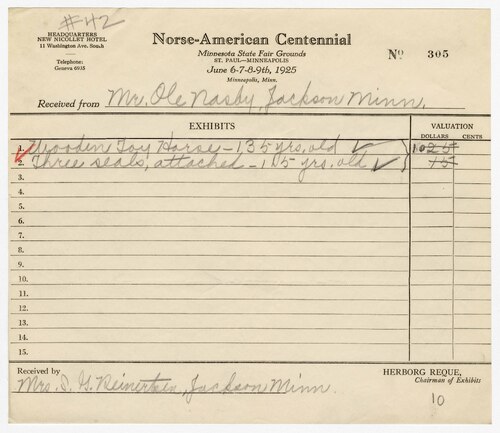 #42
HEADQUARTERS
NEW NICOLLET HOTEL
11 Washington Ave. South
Telephone:
Geneva 6935
Norse-American Centennial
Minnesota State Fair Grounds
ST. PAUL—MINNEAPOLIS
June 6-7-8-9th, 1925
Minneapolis, Minn.
No 305
Received from Mr. Ole Nasby, Jackson Minn.
EXHIBITS
VALUATION
DOLLARS CENTS
1. Wooden Toy Horse – 135 yrs. old ✓ 10 25
2. Three seals, attached – 105 yrs. old ✓ 15
3.
4.
5.
6.
7.
8.
9.
10.
11.
12.
13.
14.
15.
Received by
Mrs. S. G. Reinertsen, Jackson Minn.
HERBORG REQUE,
Chairman of Exhibits
10